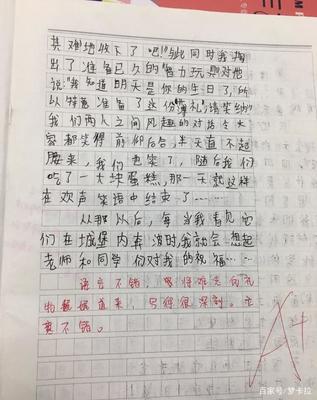 其难地收下了吧!"与此同时我掏
出了准备已久的"智力玩具"对他
说:"我知道明天是你的生日了,所
以特意准备了这份"薄礼",请笑纳"
我们两人之间风趣的对话令大
家都笑得前仰后合,半天直不起
腰来,我们也笑了,随后我们
吃了一大块蛋糕,那一天就这样
在欢声笑语中结束了……
从那以后,每当我看见它
们在城堡内奔波时,我就会想起
老师和同学们对我的祝福……
语言不错,
物
来,写得很深刻。
意不错。
A+
百家号/梦卡拉